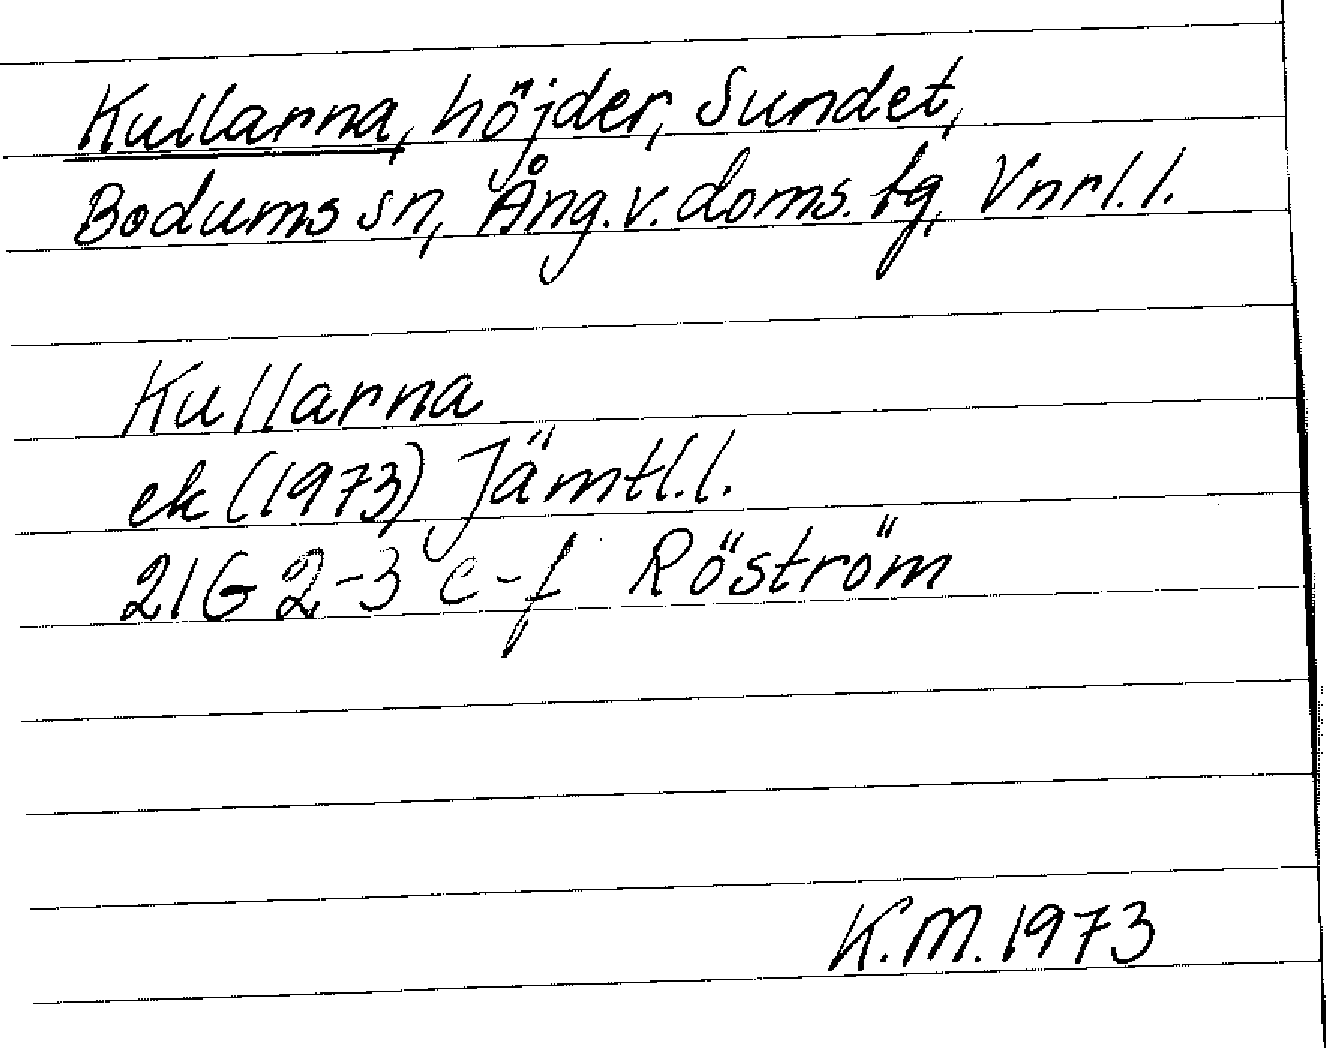 Kullarna, höjder, Sundet,
Bodums sn, Ång.v.doms.tg, Vnrl.l.
Kullarna
ek (1973) Jämtl.l.
21G 2-3 e-f Röström
K.M. 1973